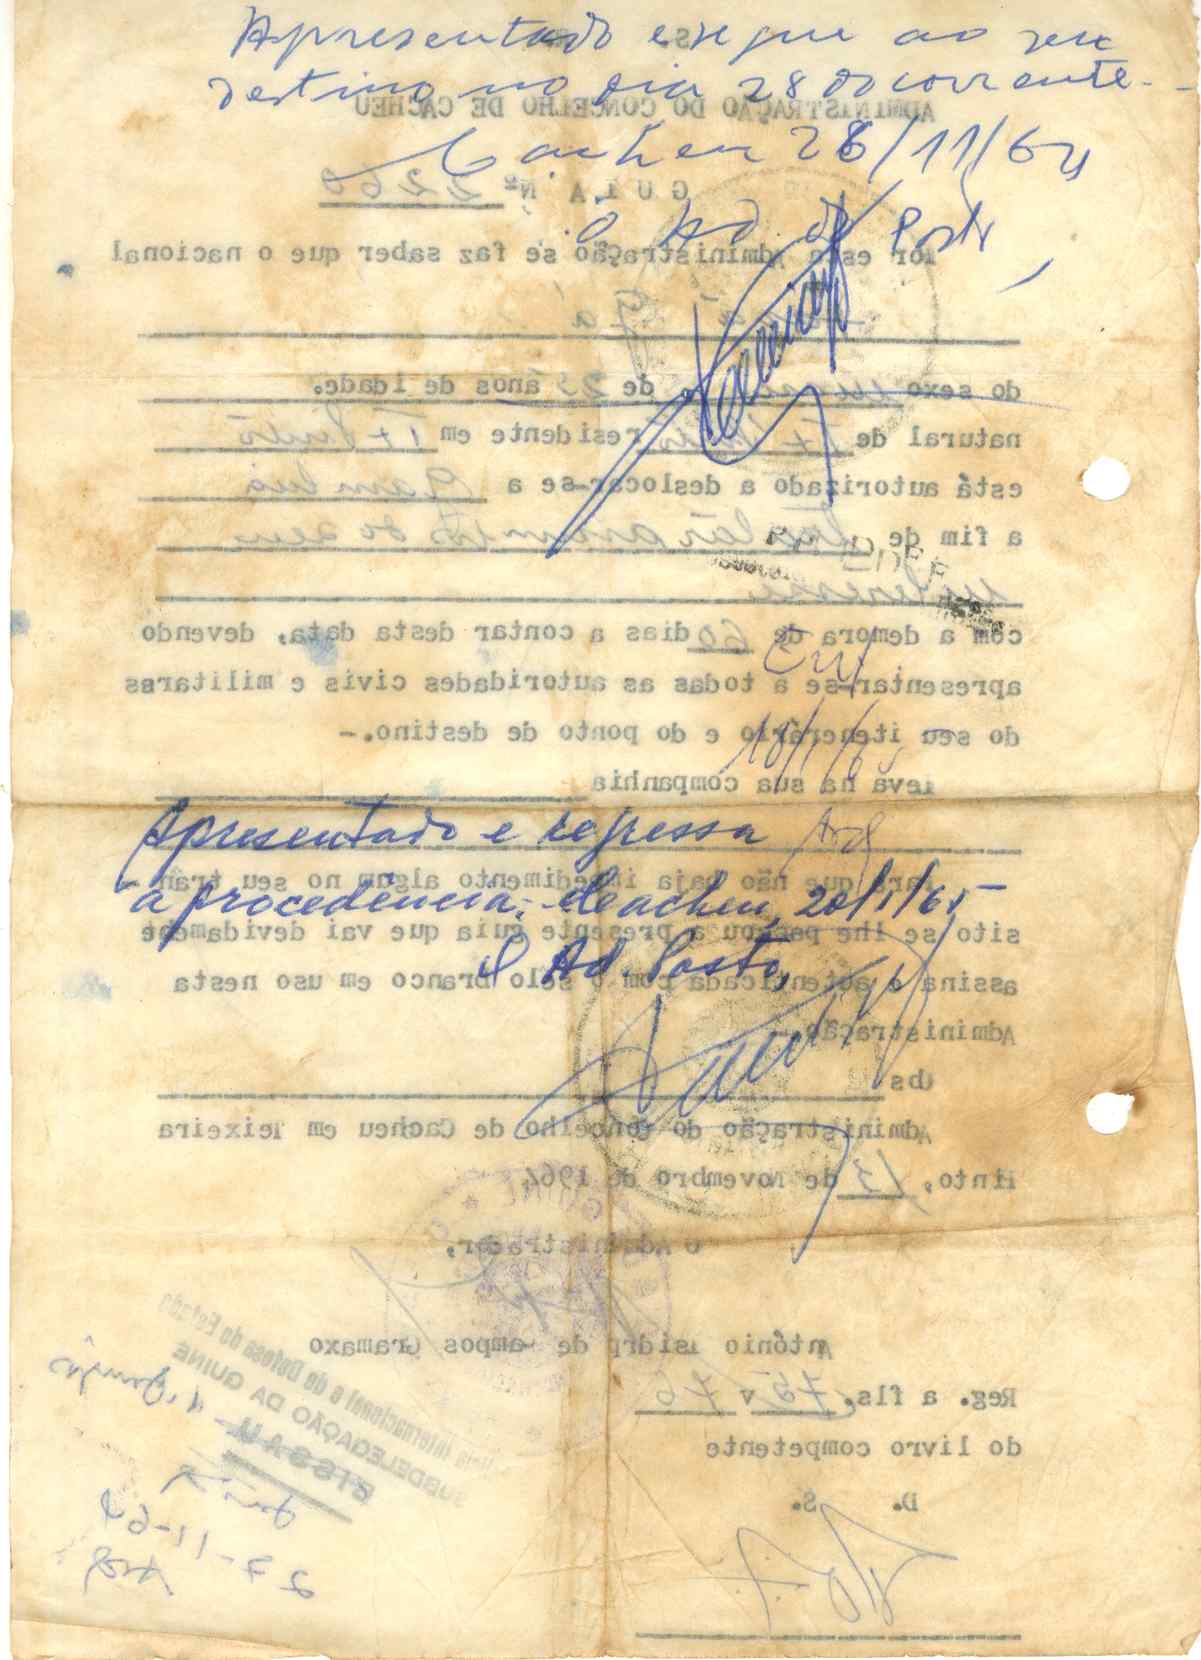 Apresentado e segue ao seu
destino no dia 28 do corrente.-
Cacheu 28/11/64
O Ad. de Posto
S.
ADMINISTRAÇÃO DO CONCELHO DE CACHEU
GUIA Nº 2260
Por esta Administração se faz saber que o nacional
do sexo de 25 anos de idade.
natural de Tx Pinto residente em Tx Pinto
está autorizado a deslocar-se a Gambia
a fim de do seu
interesse
com a demora de 60 dias a contar desta data, devendo
apresentar-se a todas as autoridades civis e militares
do seu itenerário e do ponto de destino.-
18/1/65
Leva na sua companhia
Apresentado e regressa
Para que não haja impedimento algum no seu trân
à procedência.- Cacheu, 20/1/65
sito se lhe passou a presente guia que vai devidamente
O Ad. Posto,
assina e autenticada com o selo branco em uso nesta
Administração
Obs
Administração do Concelho de Cacheu em Teixeira
Pinto, 13 de Novembro de 1964
O Administrador,
António Isidro de Campos Gramaxo
Internacional e de Defesa do Estado
SUBDELEGAÇÃO DA GUINÉ
BISSAU
27-11-64
Reg. a fls. 75 v 76
do livro competente
D. S.